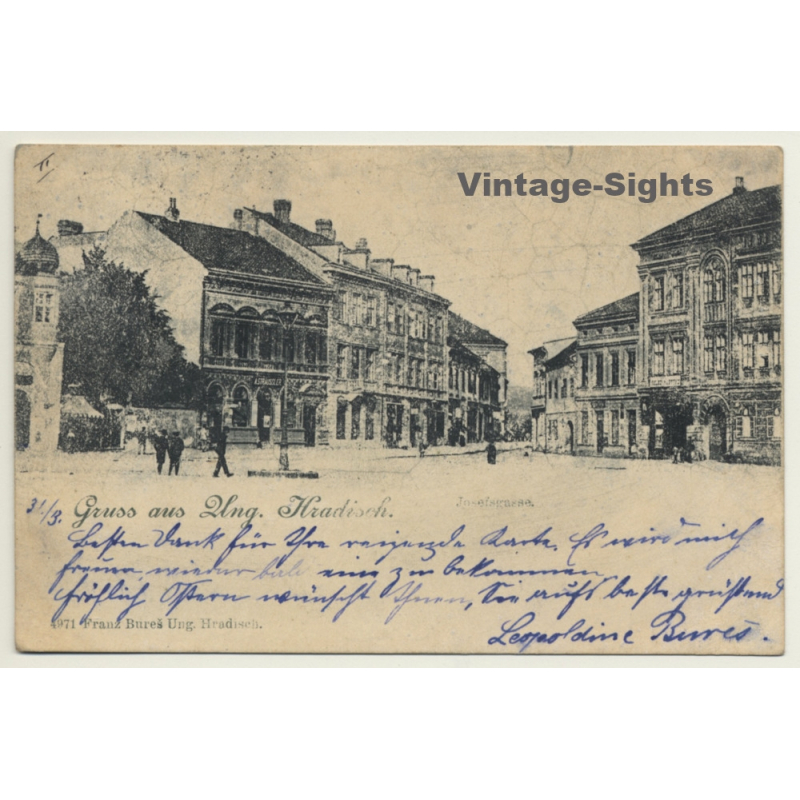 II
Vintage-Sights
31/3. Gruss aus Ung. Hradisch.
Josefsgasse.
Besten Dank für Ihre reizende Karte. Es wird mich
freuen wieder bald eine zu bekommen
fröhlich Ostern wünscht Ihnen, Sie aufs beste grüßend
4971 Franz Bureš Ung. Hradisch.
Leopoldine Bureš.